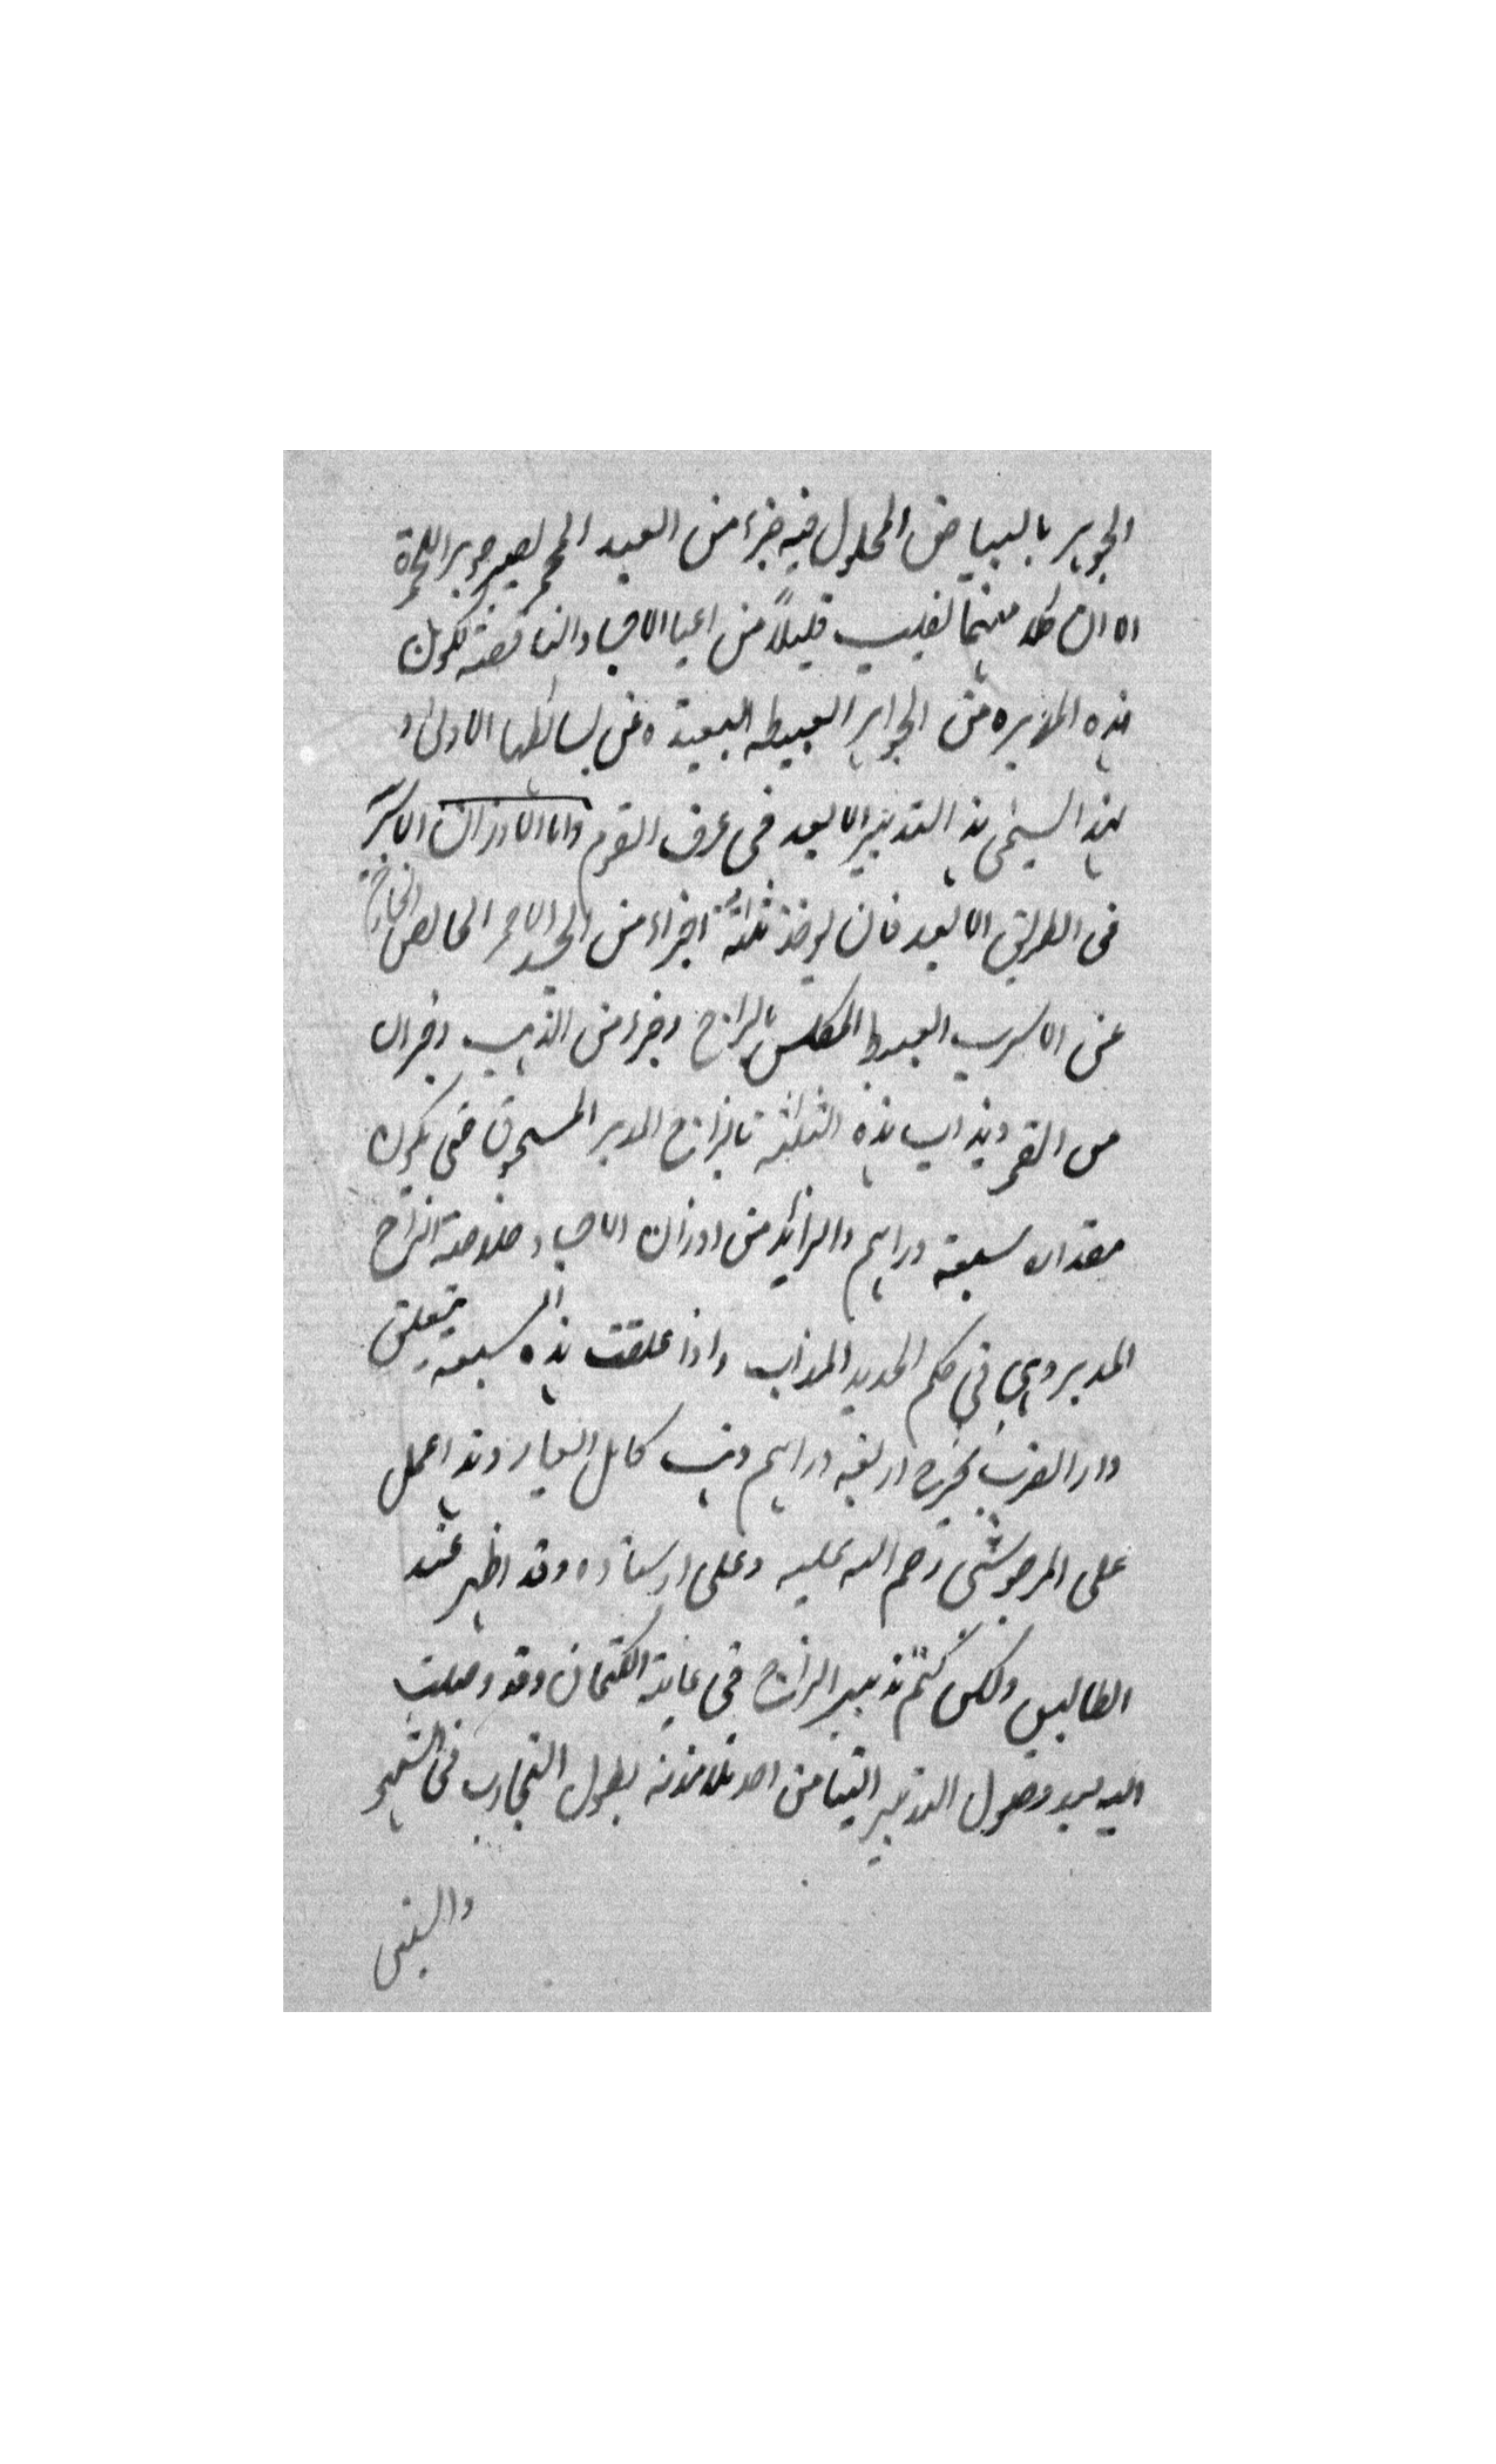 الجوهر بالبياض المحلول فيه جزء من العبد المحمر لصير جوهر الحمرة
الا ان كلا منهما يغلب قليلاً من اعيا الاجساد الناقصة لكون
هذه المدبره من الجواهر العبيطه البعيدة عن بسائطها الاولى و
لهذا يسمى هذا التدبير الابعد فى عرف القوم واما الاوزان الاكبر
فى الطريق الابعد فان يوخذ ثلثة اجزاء من الجسد الاحمر الخالص الخارج
عن الاسرب العبيط المكلس بالزاج وجزء من الذهب وجزء
من القمر ويذاب هذه الثلثة بالزاج المدبر المسحوق حتى يكون
مقدار سبعة دراهم والزائد من اوزان الاجساد خلاصة الزاج
المدبر وهى فى حكم الحديد المذاب واذا علقت هذه السبعة بتعليق
دار الضرب يخرج اربعة دراهم ذهب كامل العيار وهذا عمل
على المرجوشى رحم الله عليه وعلى اوستاده وقد اظهر عند
الطالبين ولكن كتم تدبير الزاج فى غاية الكتمان وقد وصلت
اليه بعد وصول التدبير الينا من احد تلامذته بطول التجارب فى التشميع